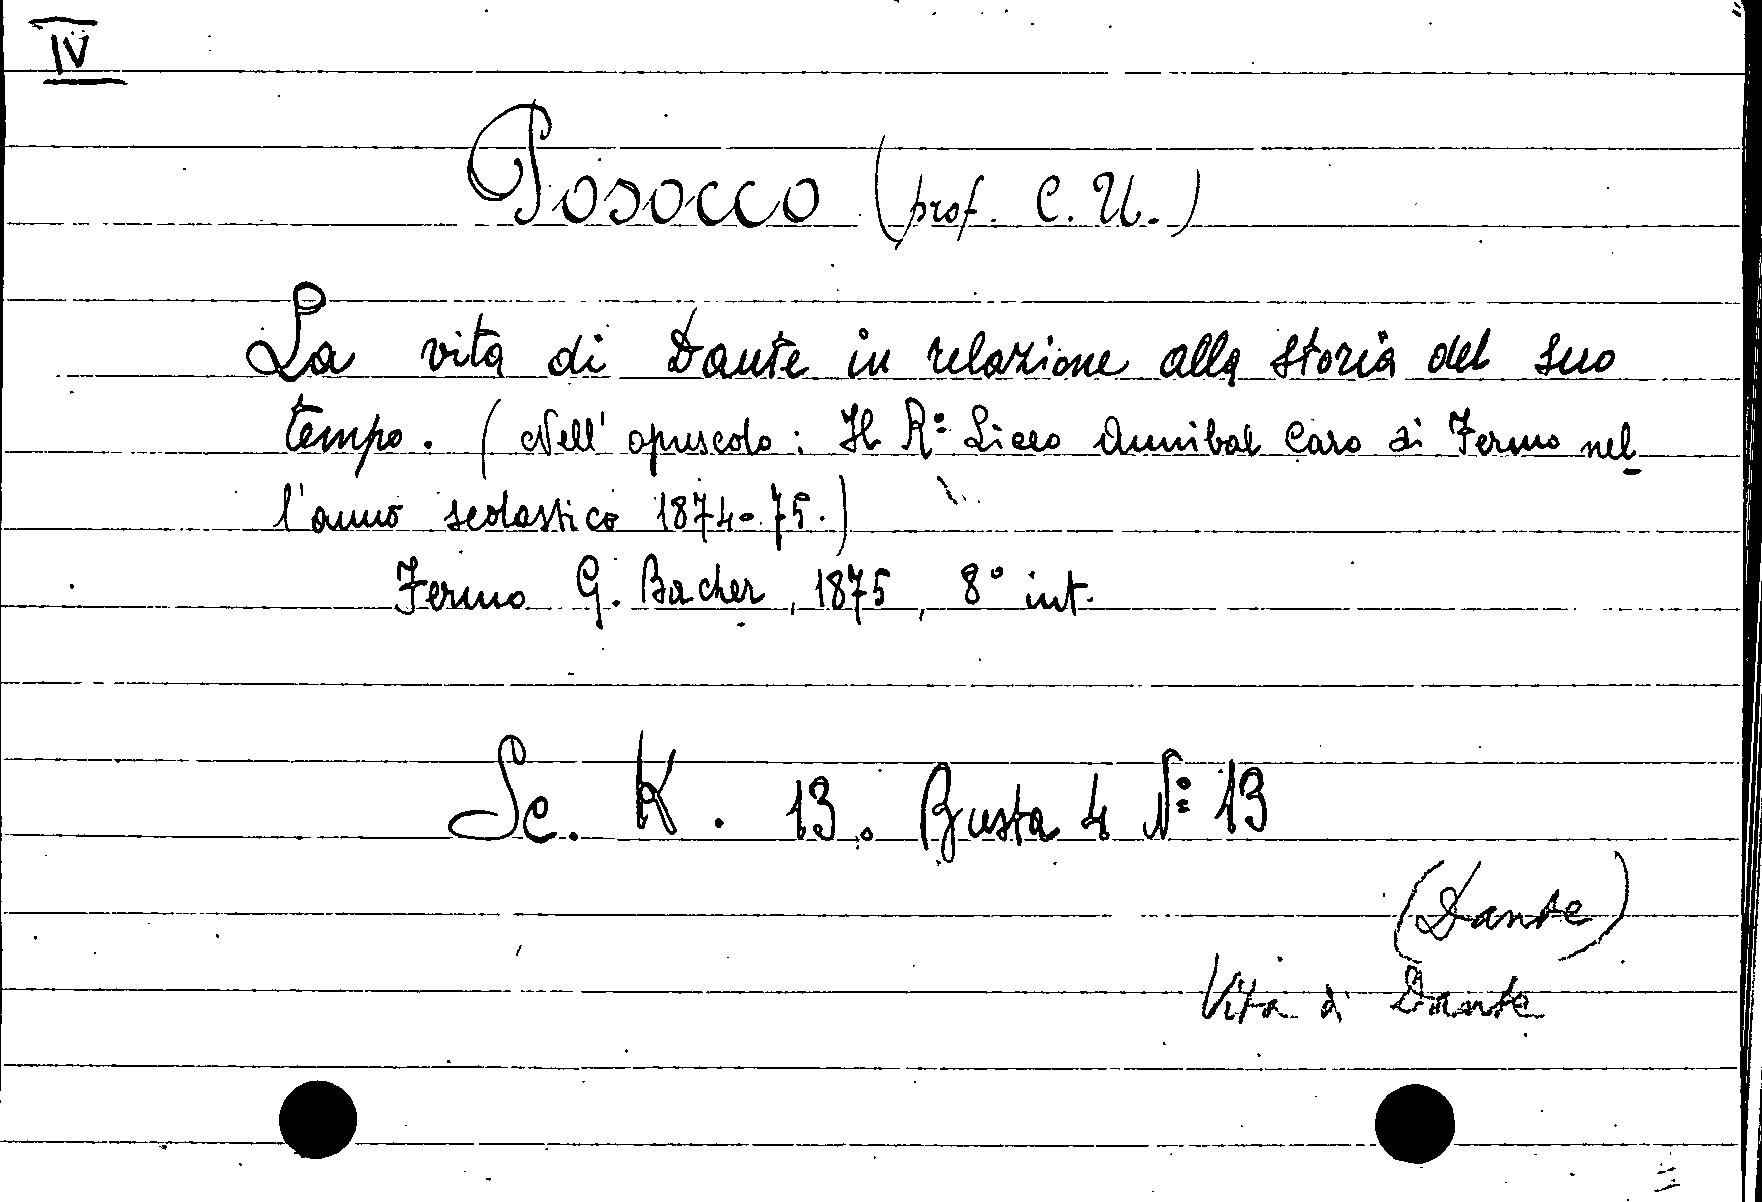 IV
Posocco (prof. C. U.)
La vita di Dante in relazione alla storia del suo
tempo. (Nell' opuscolo: Il R.º Liceo Annibal Caro di Fermo nel
l'anno scolastico 1874-75.)
Fermo G. Bacher, 1875, 8º int.
Sc. K. 13. Busta 4 Nº 13
(Dante)
Vita di Dante